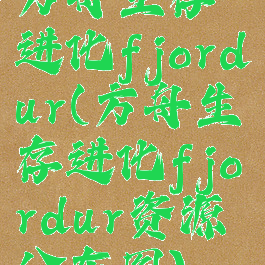 方舟生存
进化fjord
ur(方舟生
存进化fjo
rdur资源
分布图)